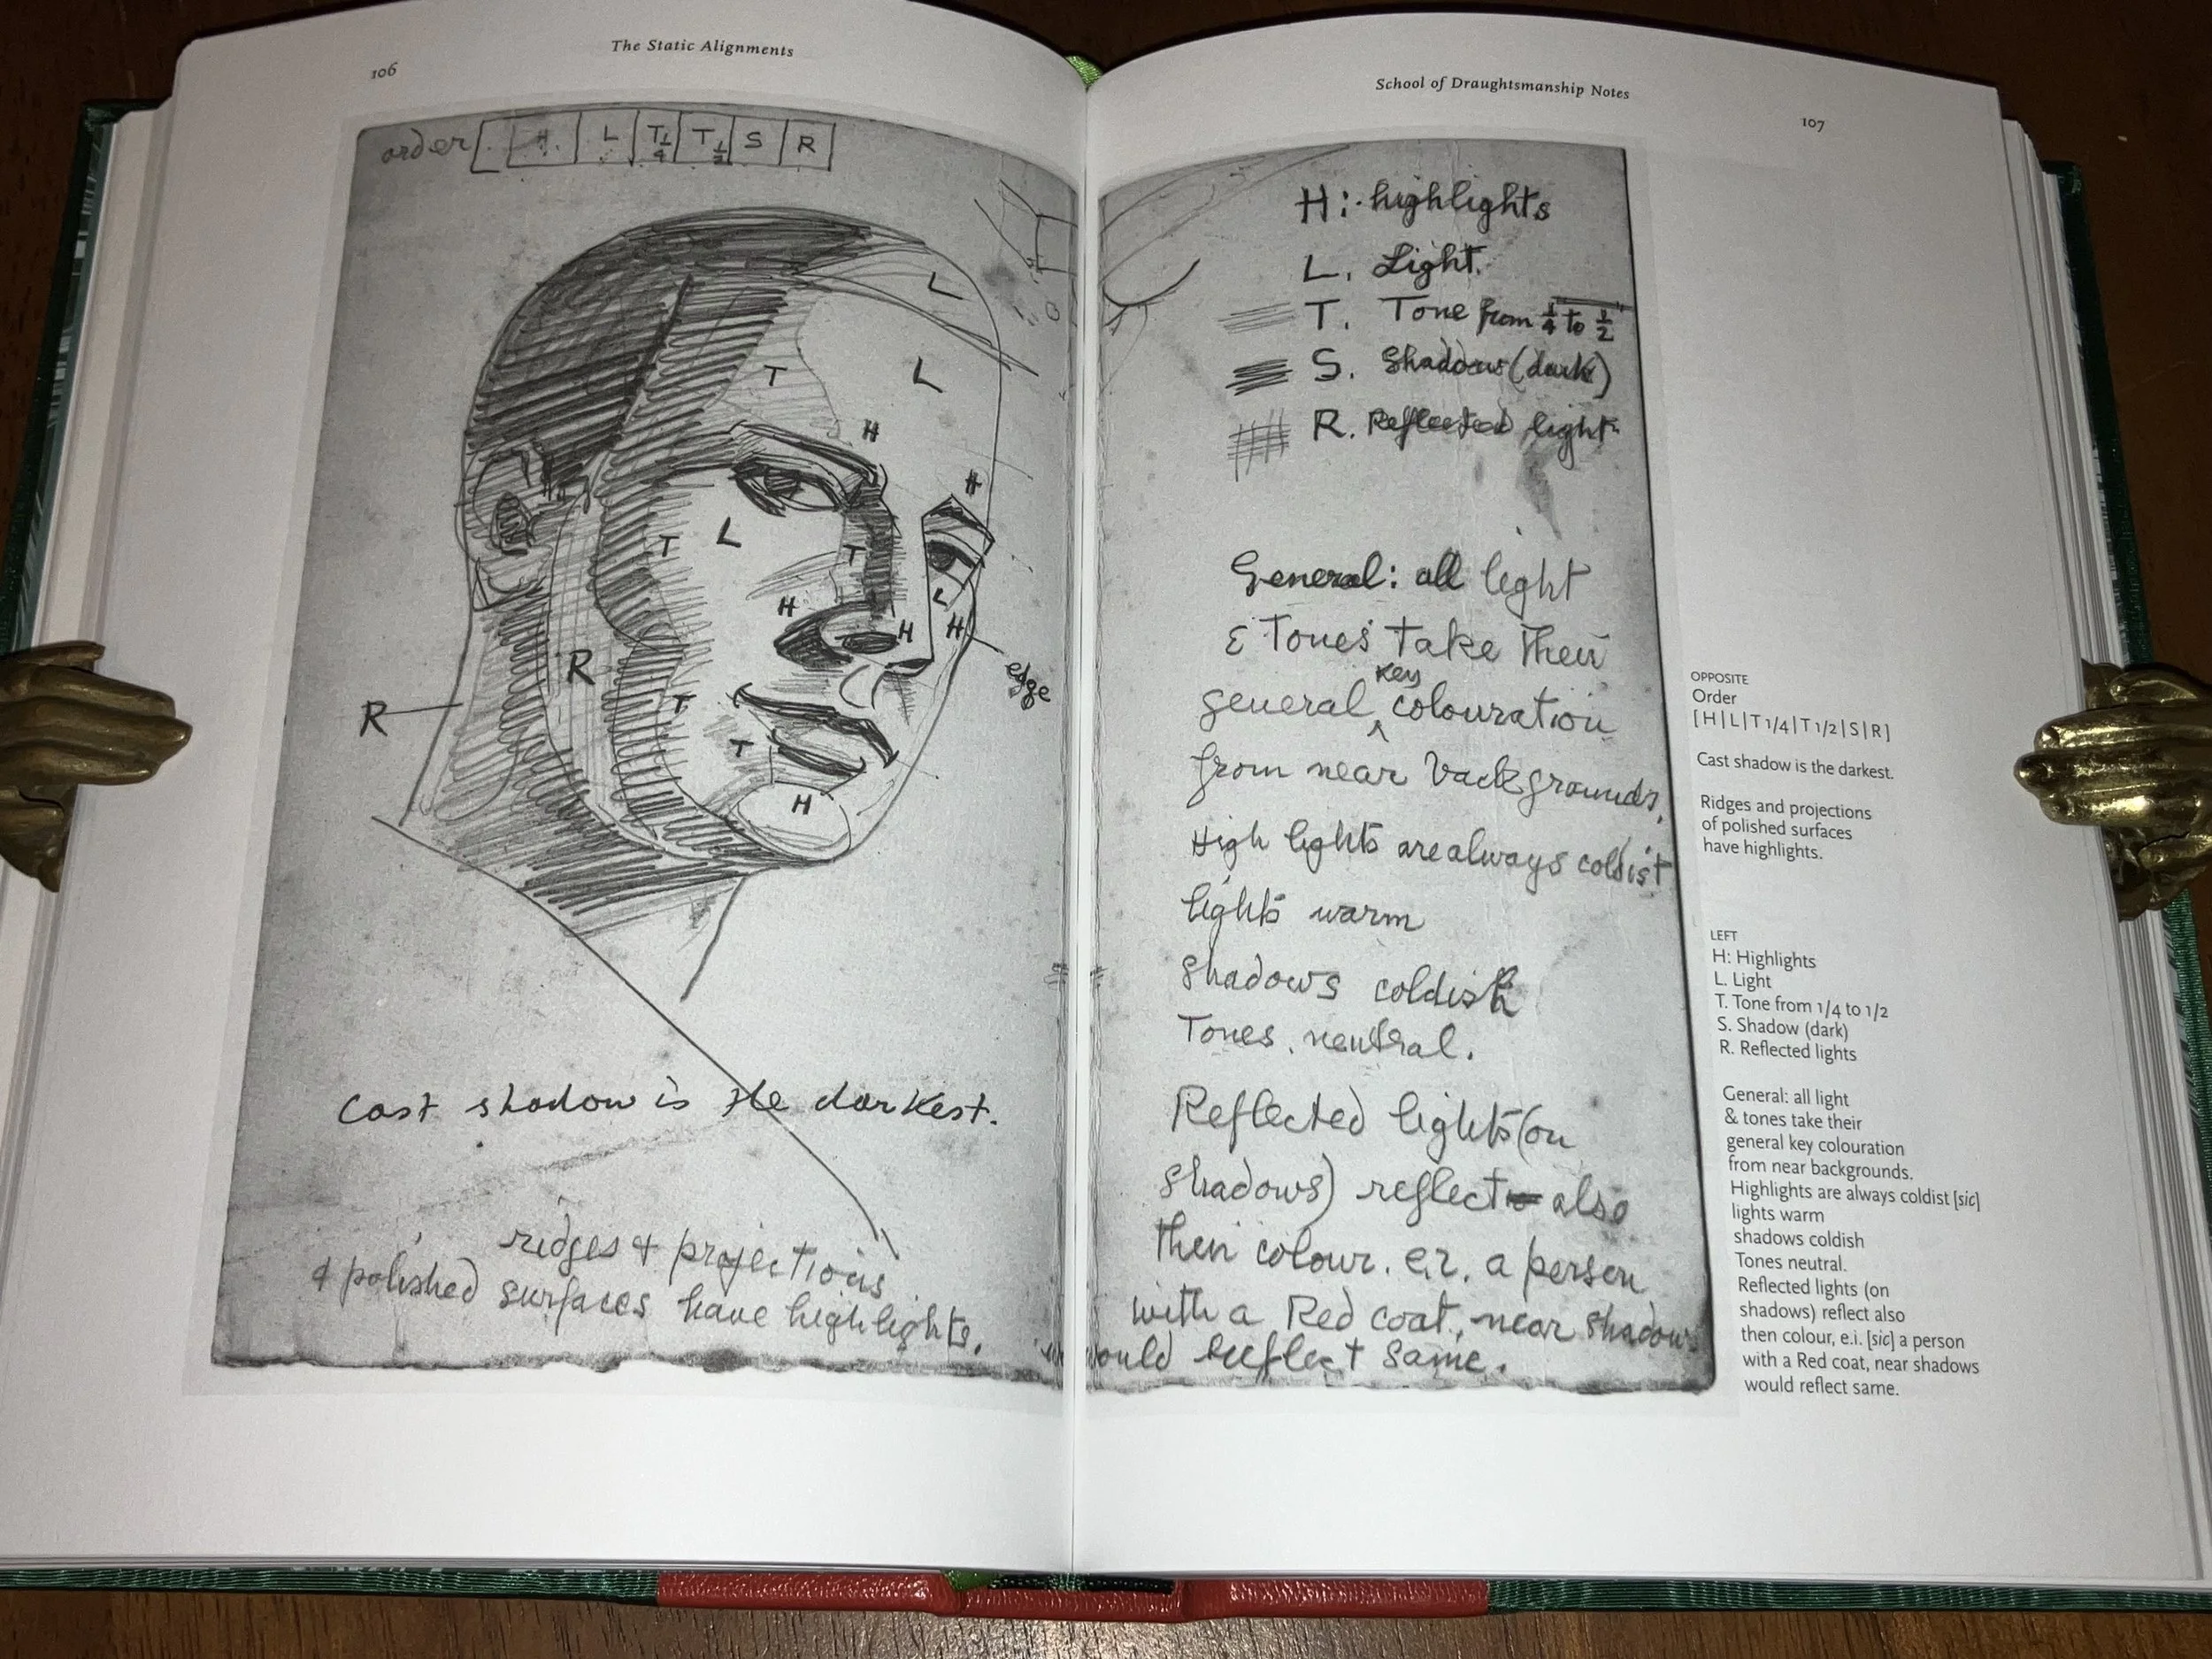 106
The Static Alignments
order [ H L T 1/4 T 1/2 S R
L
L
T
H
H
L
T
T
H
H
L
H
edge
R
R
T
T
H
Cast shadow is the darkest.
ridges & projections
& polished surfaces have highlights.
School of Draughtsmanship Notes
107
H: highlights
L. Light.
T. Tone from 1/4 to 1/2
S. Shadows (dark)
R. Reflected light
General: all light
& Tones take their
general key colouration
from near backgrounds,
High lights are always coldist
lights warm
shadows coldish
Tones. neutral.
Reflected lights (on
shadows) reflect also
their colour. e.i. a person
with a Red coat, near shadows
would reflect same.
OPPOSITE
Order
[H|L|T 1/4|T 1/2|S|R]
Cast shadow is the darkest.
Ridges and projections
of polished surfaces
have highlights.
LEFT
H: Highlights
L. Light
T. Tone from 1/4 to 1/2
S. Shadow (dark)
R. Reflected lights
General: all light
& tones take their
general key colouration
from near backgrounds.
Highlights are always coldist [sic]
lights warm
shadows coldish
Tones neutral.
Reflected lights (on
shadows) reflect also
then colour, e.i. [sic] a person
with a Red coat, near shadows
would reflect same.